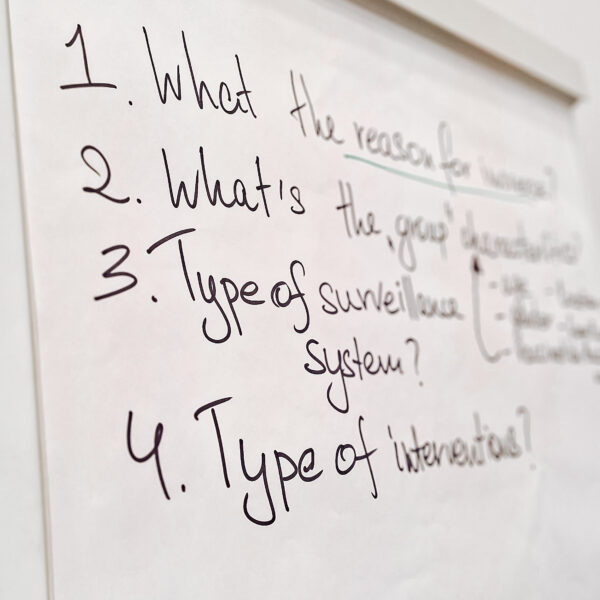 1. What the reason for increase?
2. What's the „group" characteristics?
3. Type of surveillance
system?
4. Type of interventions?